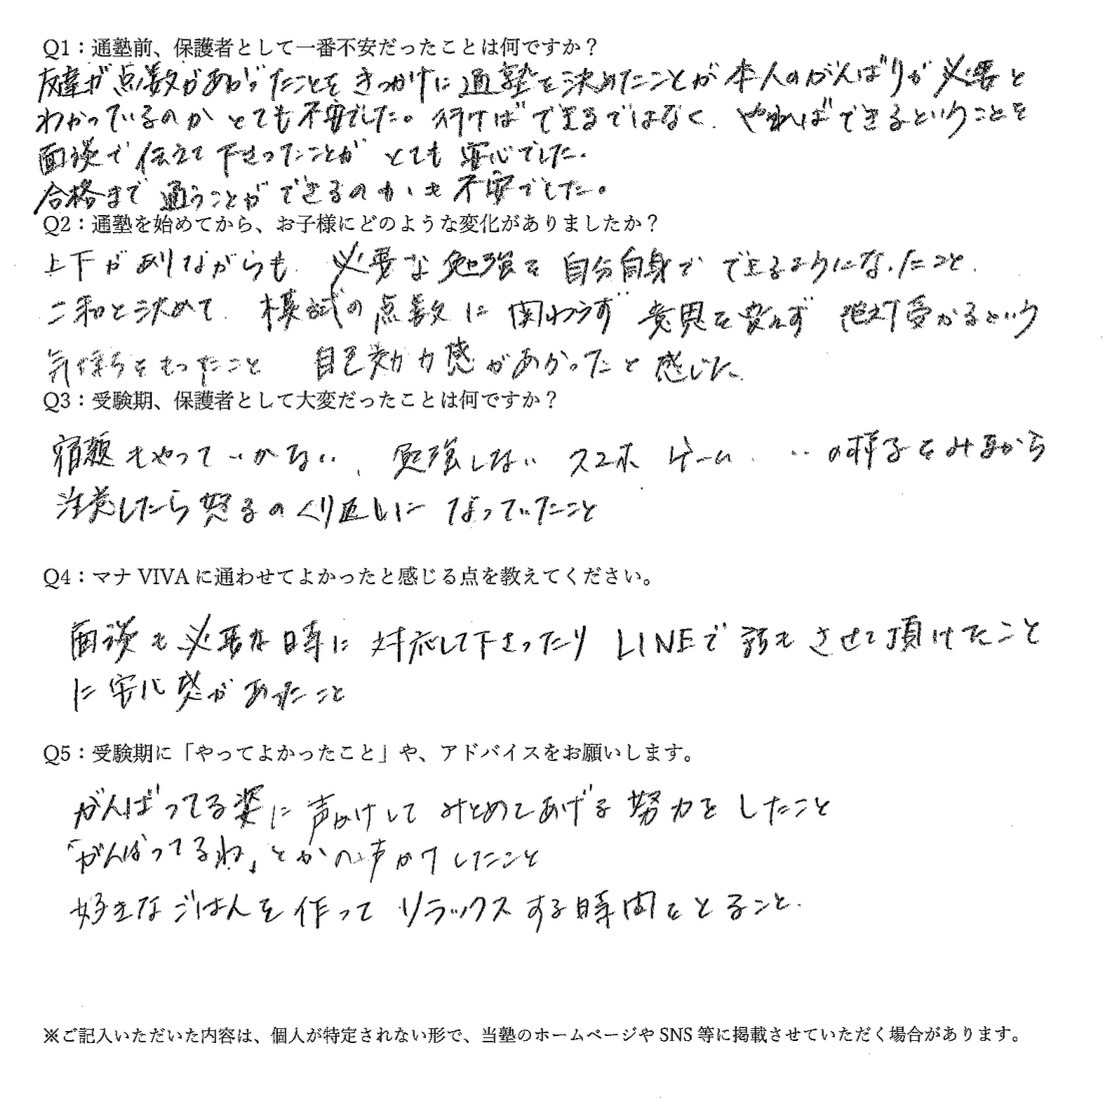 Q1：通塾前、保護者として一番不安だったことは何ですか？
友達が点数があがったことをきっかけに通塾を決めたことが本人のがんばりが必要と
わかっているのかとても不安でした。行けばできるではなく、やればできるということを
面談で伝えて下さったことがとても安心でした。
合格まで通うことができるのかも不安でした。
Q2：通塾を始めてから、お子様にどのような変化がありましたか？
上下がありながらも、必要な勉強を自分自身でできるようになったこと。
二和と決めて、模試の点数に関わらず意思を変えず絶対受かるという
気持ちをもったこと 自己効力感があがったと感じた。
Q3：受験期、保護者として大変だったことは何ですか？
宿題もやっていかない、勉強しない スマホ ゲーム・・・の様子をみるから
注意したら怒るのくり返しになっていたこと
Q4：マナ VIVA に通わせてよかったと感じる点を教えてください。
面談も必要な時に対応して下さったり LINEで話もさせて頂けたこと
に安心感があったこと
Q5：受験期に「やってよかったこと」や、アドバイスをお願いします。
がんばってる姿に声かけしてみとめてあげる努力をしたこと
「がんばってるね」とかの声かけしたこと
好きなごはんを作ってリラックスする時間をとること。
※ご記入いただいた内容は、個人が特定されない形で、当塾のホームページや SNS 等に掲載させていただく場合があります。